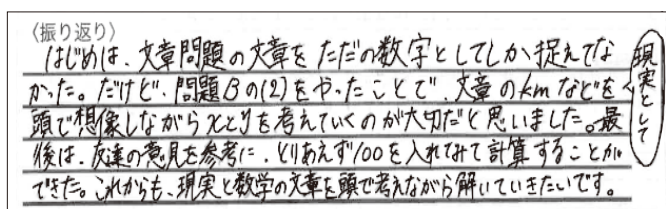 〈振り返り〉
はじめは、文章問題の文章をただの数字としてしか捉えてな
かった。だけど、問題Bの(2)をやったことで、文章のkmなどを
現実として
頭で想像しながらxとyを考えていくのが大切だと思いました。最
後は、友達の意見を参考に、とりあえず100を入れてみて計算することが
できた。これからも、現実と数学の文章を頭で考えながら解いていきたいです。